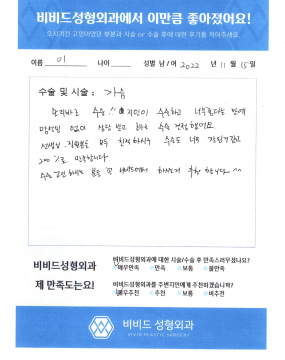 비비드성형외과에서 이만큼 좋아졌어요!
오시기전 고민이였던 부분과 시술 or 수술 후에 대한 후기를 적어주세요.
이름 이 나이 성별 남 / 여 2022 년 11 월 15 일
수술 및 시술 : 가슴
수술 !! 지인이 수술하고 너무 좋다는 말에
상담 받고 바로 수술 결정했어요
선생님, 직원분들 모두 친절하시구 수술도 너무
200%로 만족합니다
수술 비비드에서 하시는거 추천 합니다 ^^
비비드성형외과
제 만족도는요!
비비드성형외과에 대한 시술/수술 후 만족스러우셨나요?
매우만족 만족 보통 불만족
비비드성형외과를 주변지인에게 추천하겠습니까?
매우추천 추천 보통 비추천
비비드 성형외과
VIVID PLASTIC SURGERY